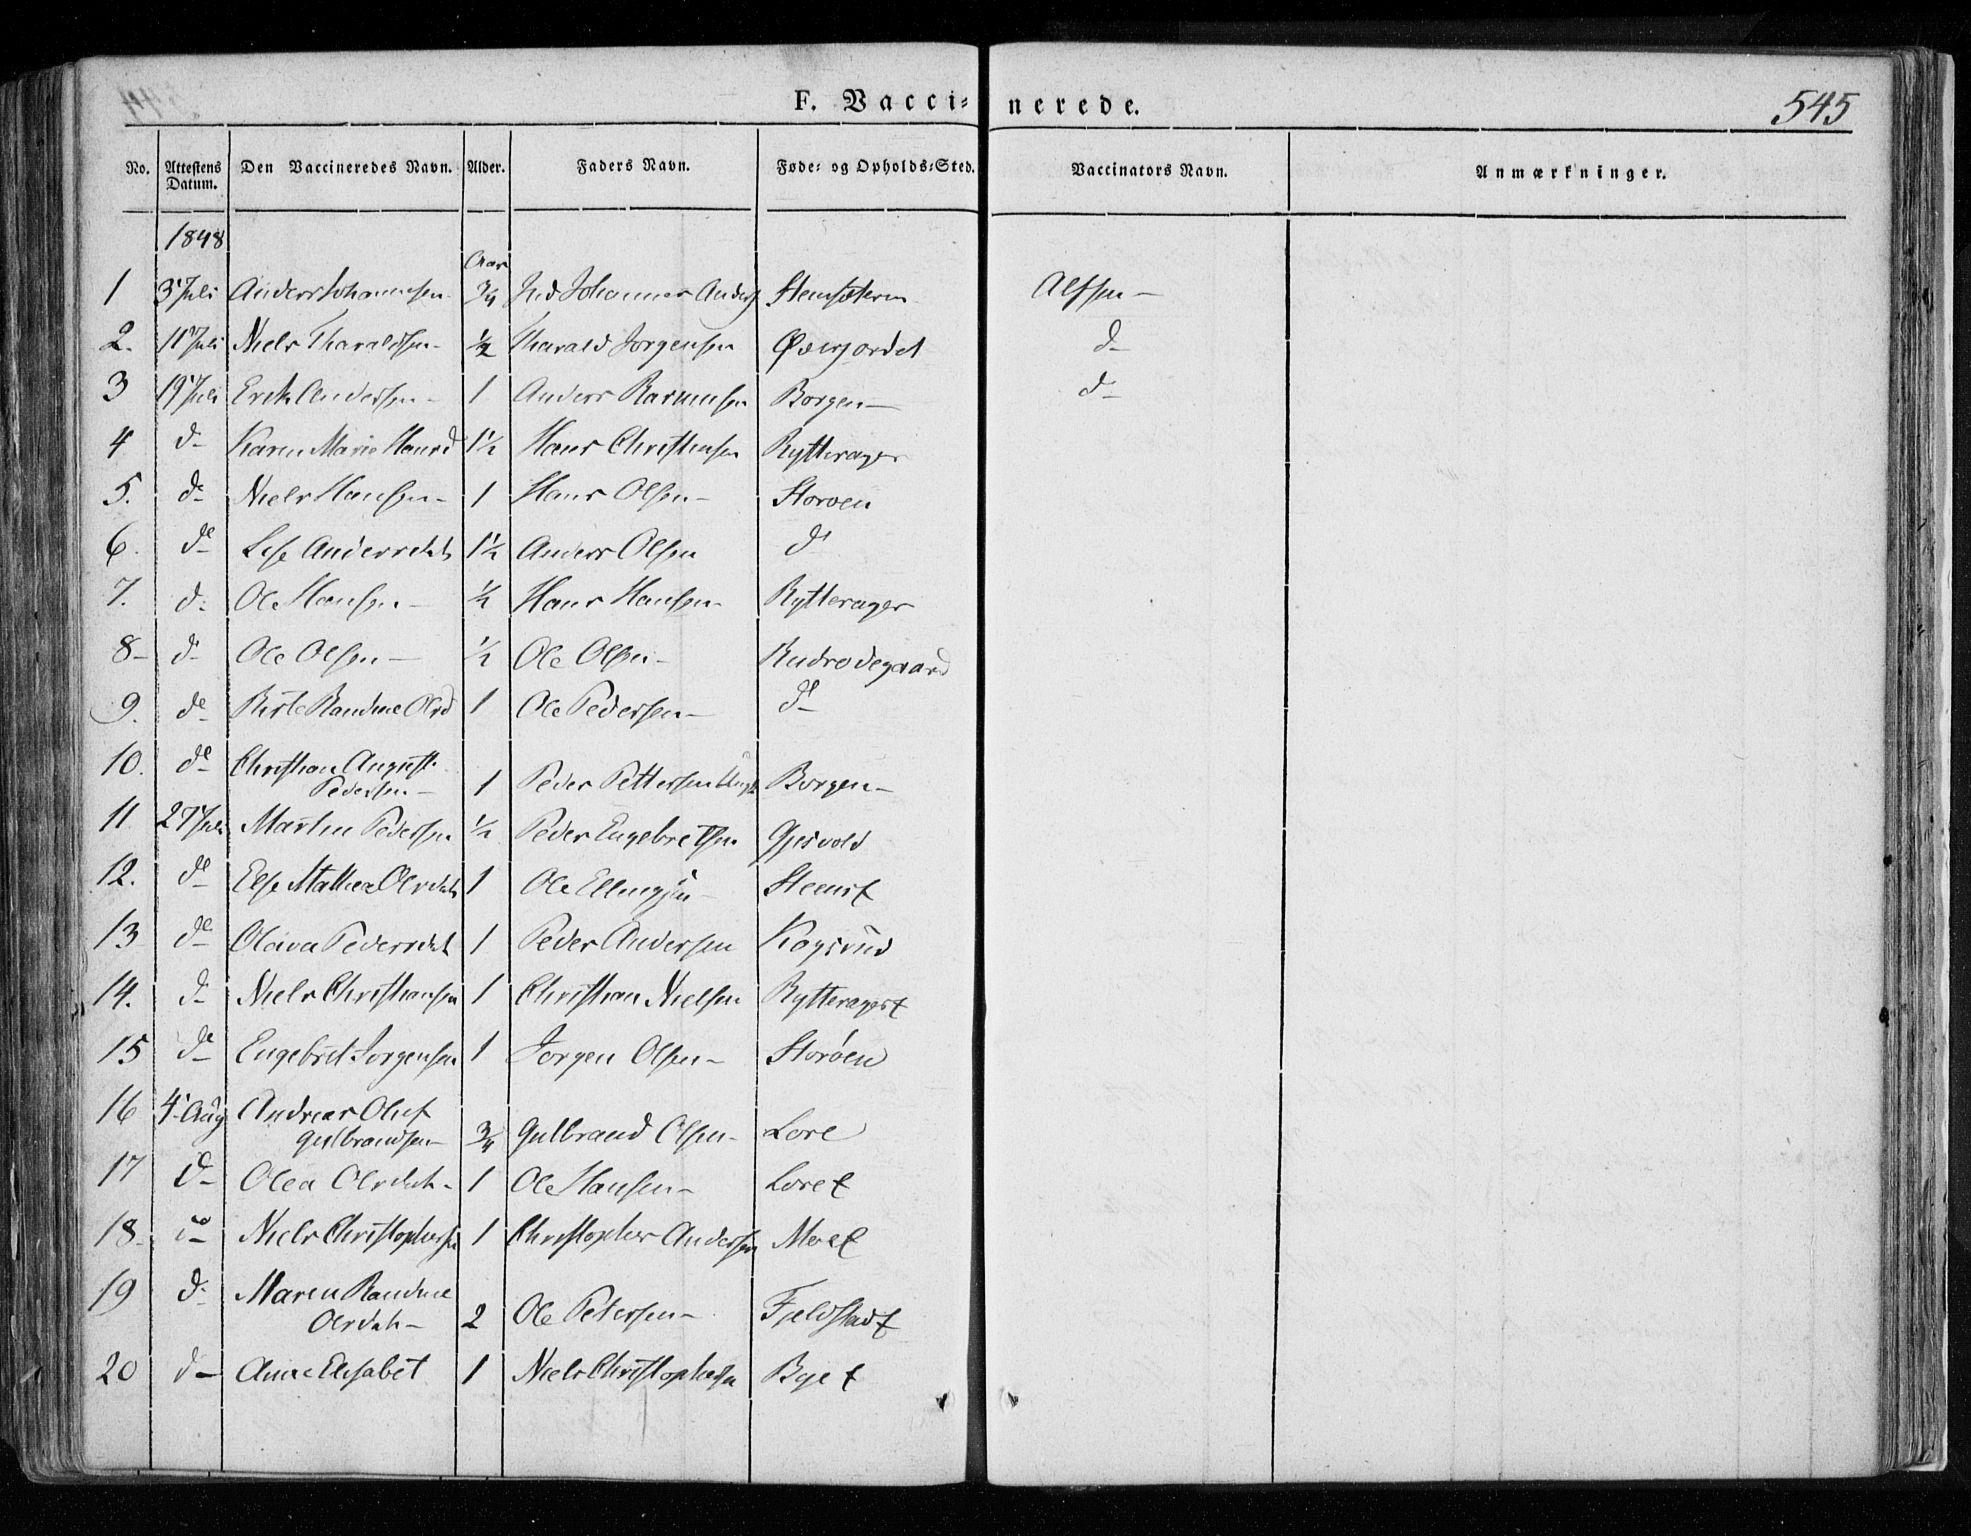 F. Vaccinerede. 545
No. Attestens Datum. Den Vaccineredes Navn. Alder. Faders Navn. Føde- og Opholds-Sted. Vaccinators Navn. Anmærkninger.
1848
Aar
1 3 Juli Anders Johannesen 3/4 Johannes Anders Alfsen
2. 11 Juli Niels Tharaldsen 1/2 Tharald Jørgensen Øverjordet d–
3 19 Juli Erik Andersen 1 Anders Rasmusen Borgen d–
4 d– Karen Marie Hansd 1 1/2 Hans Christensen Rytterager
5. d– Niels Hansen 1 Hans Olsen Storøen
6. do– Lise Andersdatr 1 1/2 Anders Olsen do
7. d– Ole Hansen 1/2 Hans Hansen Rytterager
8– d– Ole Olsen 1/2 Ole Olsen
9. do– Birte Randine Olsd 1 Ole Pedersen do–
10. do– Christian August
Pedersen 1 Peder Pettersen Borgen
11 27 Juli Martin Pedersen 1/2 Peder Engebretsen Gjesvold
12. do– Else Mathea Olsdatr 1 Ole Ellingsen
13 do– Olava Pedersdatr 1 Peder Andersen Kogsrud
14. d– Niels Christiansen 1 Christian Nielsen
15 do– Engebret Jørgensen 1 Jørgen Olsen Storøen
16 4 Aug Andreas Oluf
Gulbrandsen 3/4 Gulbrand Olsen Lore
17 d– Olea Olsdatr 1 Ole Hansen LoreE
18– do Niels Christophersen 1 Christopher Andersen MoeE
19 d– Maren Randine
Olsdatr 2 Ole Petersen FjeldstadE
20 d– Anne Elisabet 1 Niels Christophersen ByeE